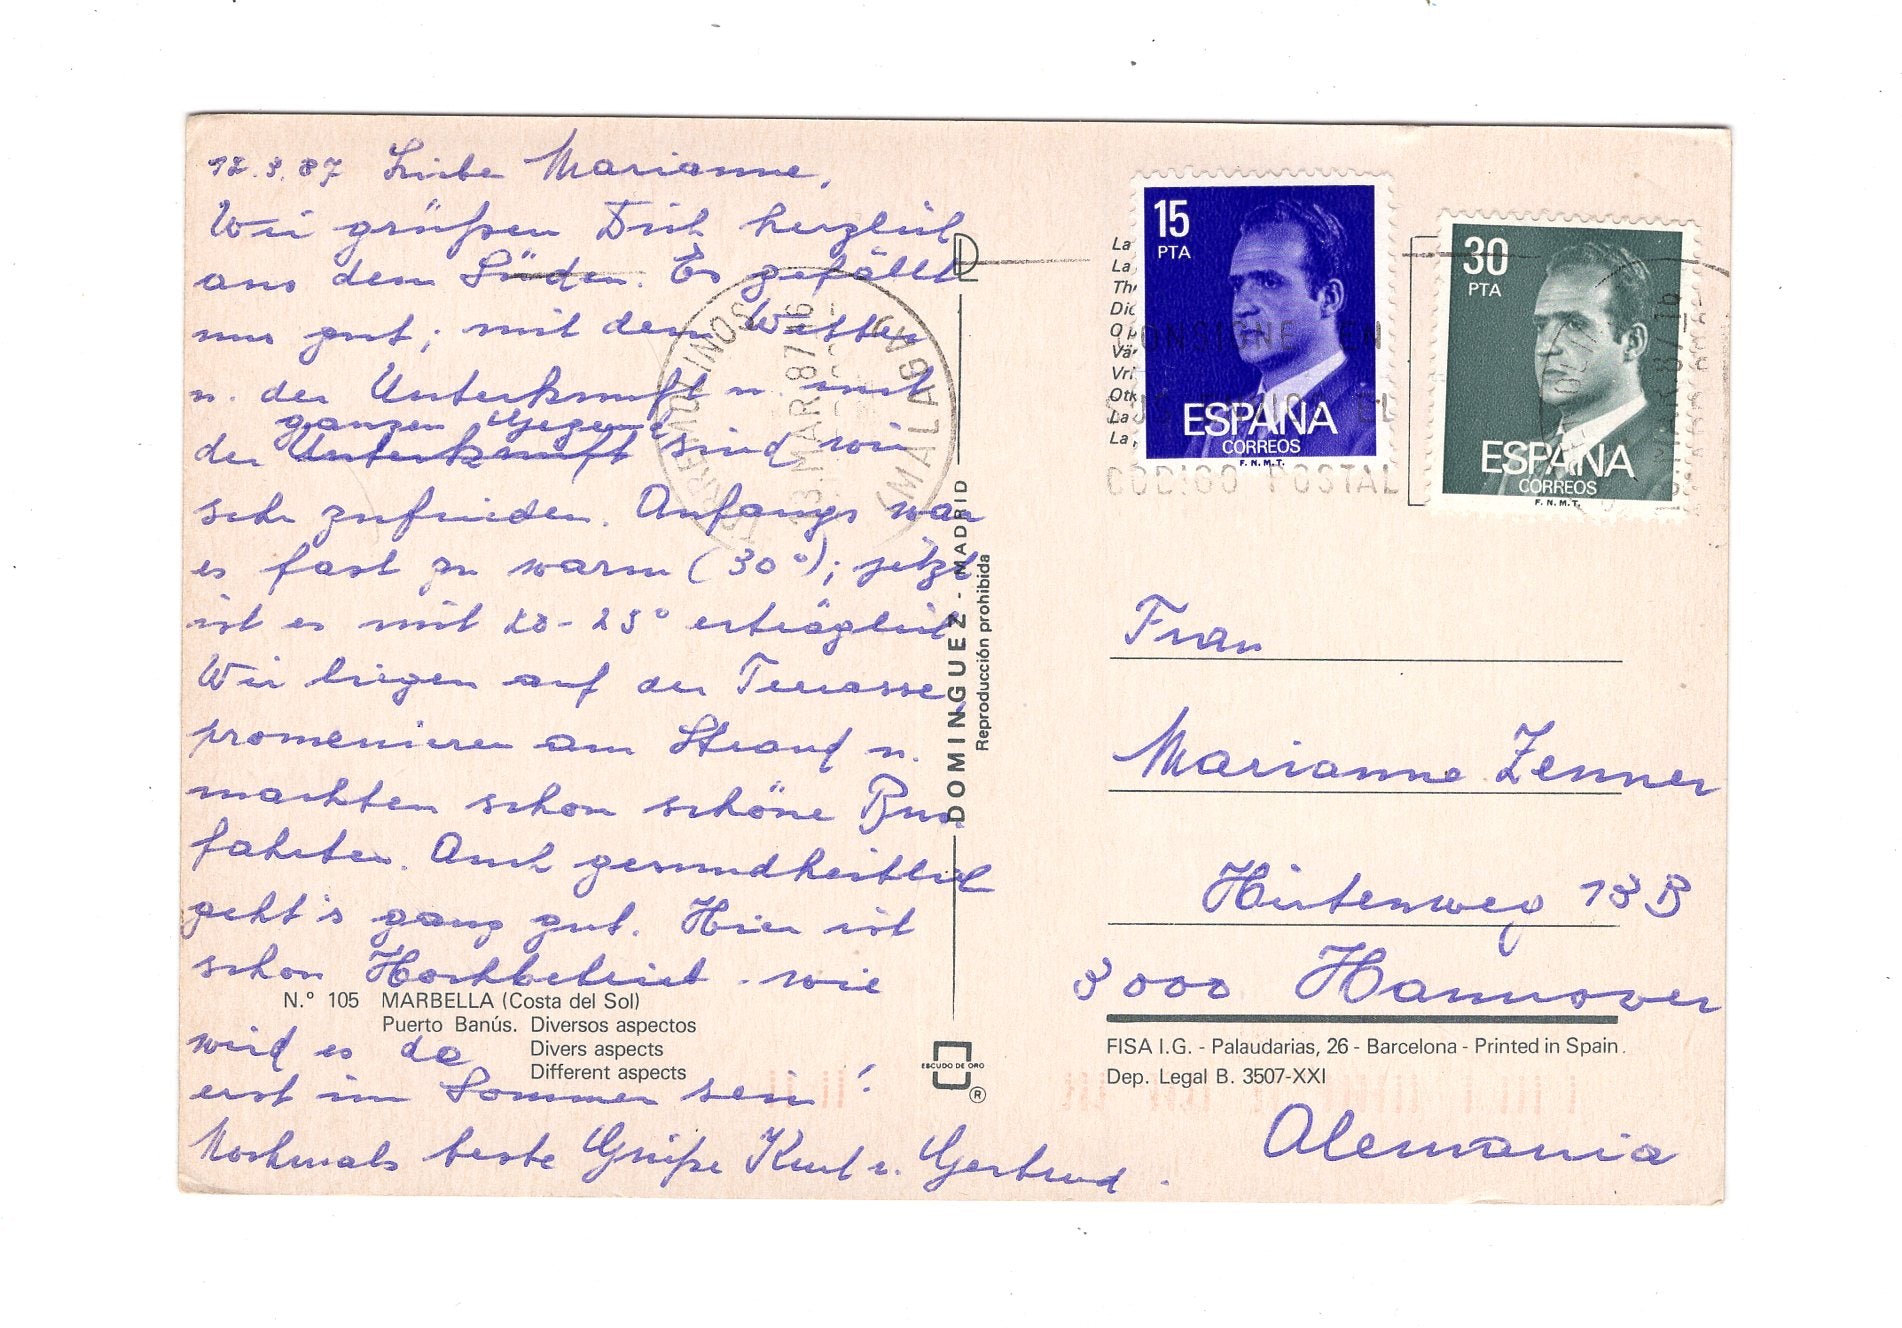 12.3.87 Liebe Marianne,
Wir grüßen Dich herzlich
aus dem Süden. Es gefällt
uns gut; mit dem Wetter
u. der Unterkunft u. mit
ganzen Gegend
der Unterkunft sind wir
sehr zufrieden. Anfangs war
es fast zu warm (30°); jetzt
ist es mit 20-25° erträglich.
Wir liegen auf der Terrasse,
promenieren am Strand u.
machten schon schöne Bus
fahrten. Auch gesundheitlich
geht's ganz gut. Hier ist
schon Hochbetrieb - wie
wird es da
erst im Sommer sein!
Nochmals beste Grüße Kurt u. Gertrud.
N.º 105 MARBELLA (Costa del Sol)
Puerto Banús. Diversos aspectos
Divers aspects
Different aspects
TORREMOLINOS
(MALAGA)
13.MAR 87 16
DOMINGUEZ - MADRID
Reproducción prohibida
ESCUDO DE ORO
®
15
PTA
ESPAÑA
CORREOS
F.N.M.T.
30
PTA
ESPAÑA
CORREOS
F.N.M.T.
La
La
Th
Dic
Vri
Otk
La
La
CONSIGNE EN
EL
CODIGO POSTAL
Frau
Marianne Zenner
Hirtenweg 13 B
3000 Hannover
FISA I.G. - Palaudarias, 26 - Barcelona - Printed in Spain.
Dep. Legal B. 3507-XXI
Alemania